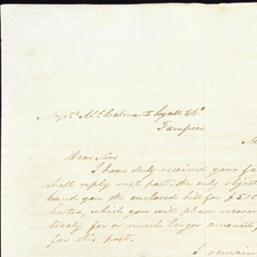 Messrs McCalmont Lyall & Co
Tampico
Dear Sirs
I have duly received your fa
shall reply next post. the only object
hand you the enclosed bill for $510
which you will please
treaty for a much larger amount
for this post.
I remain